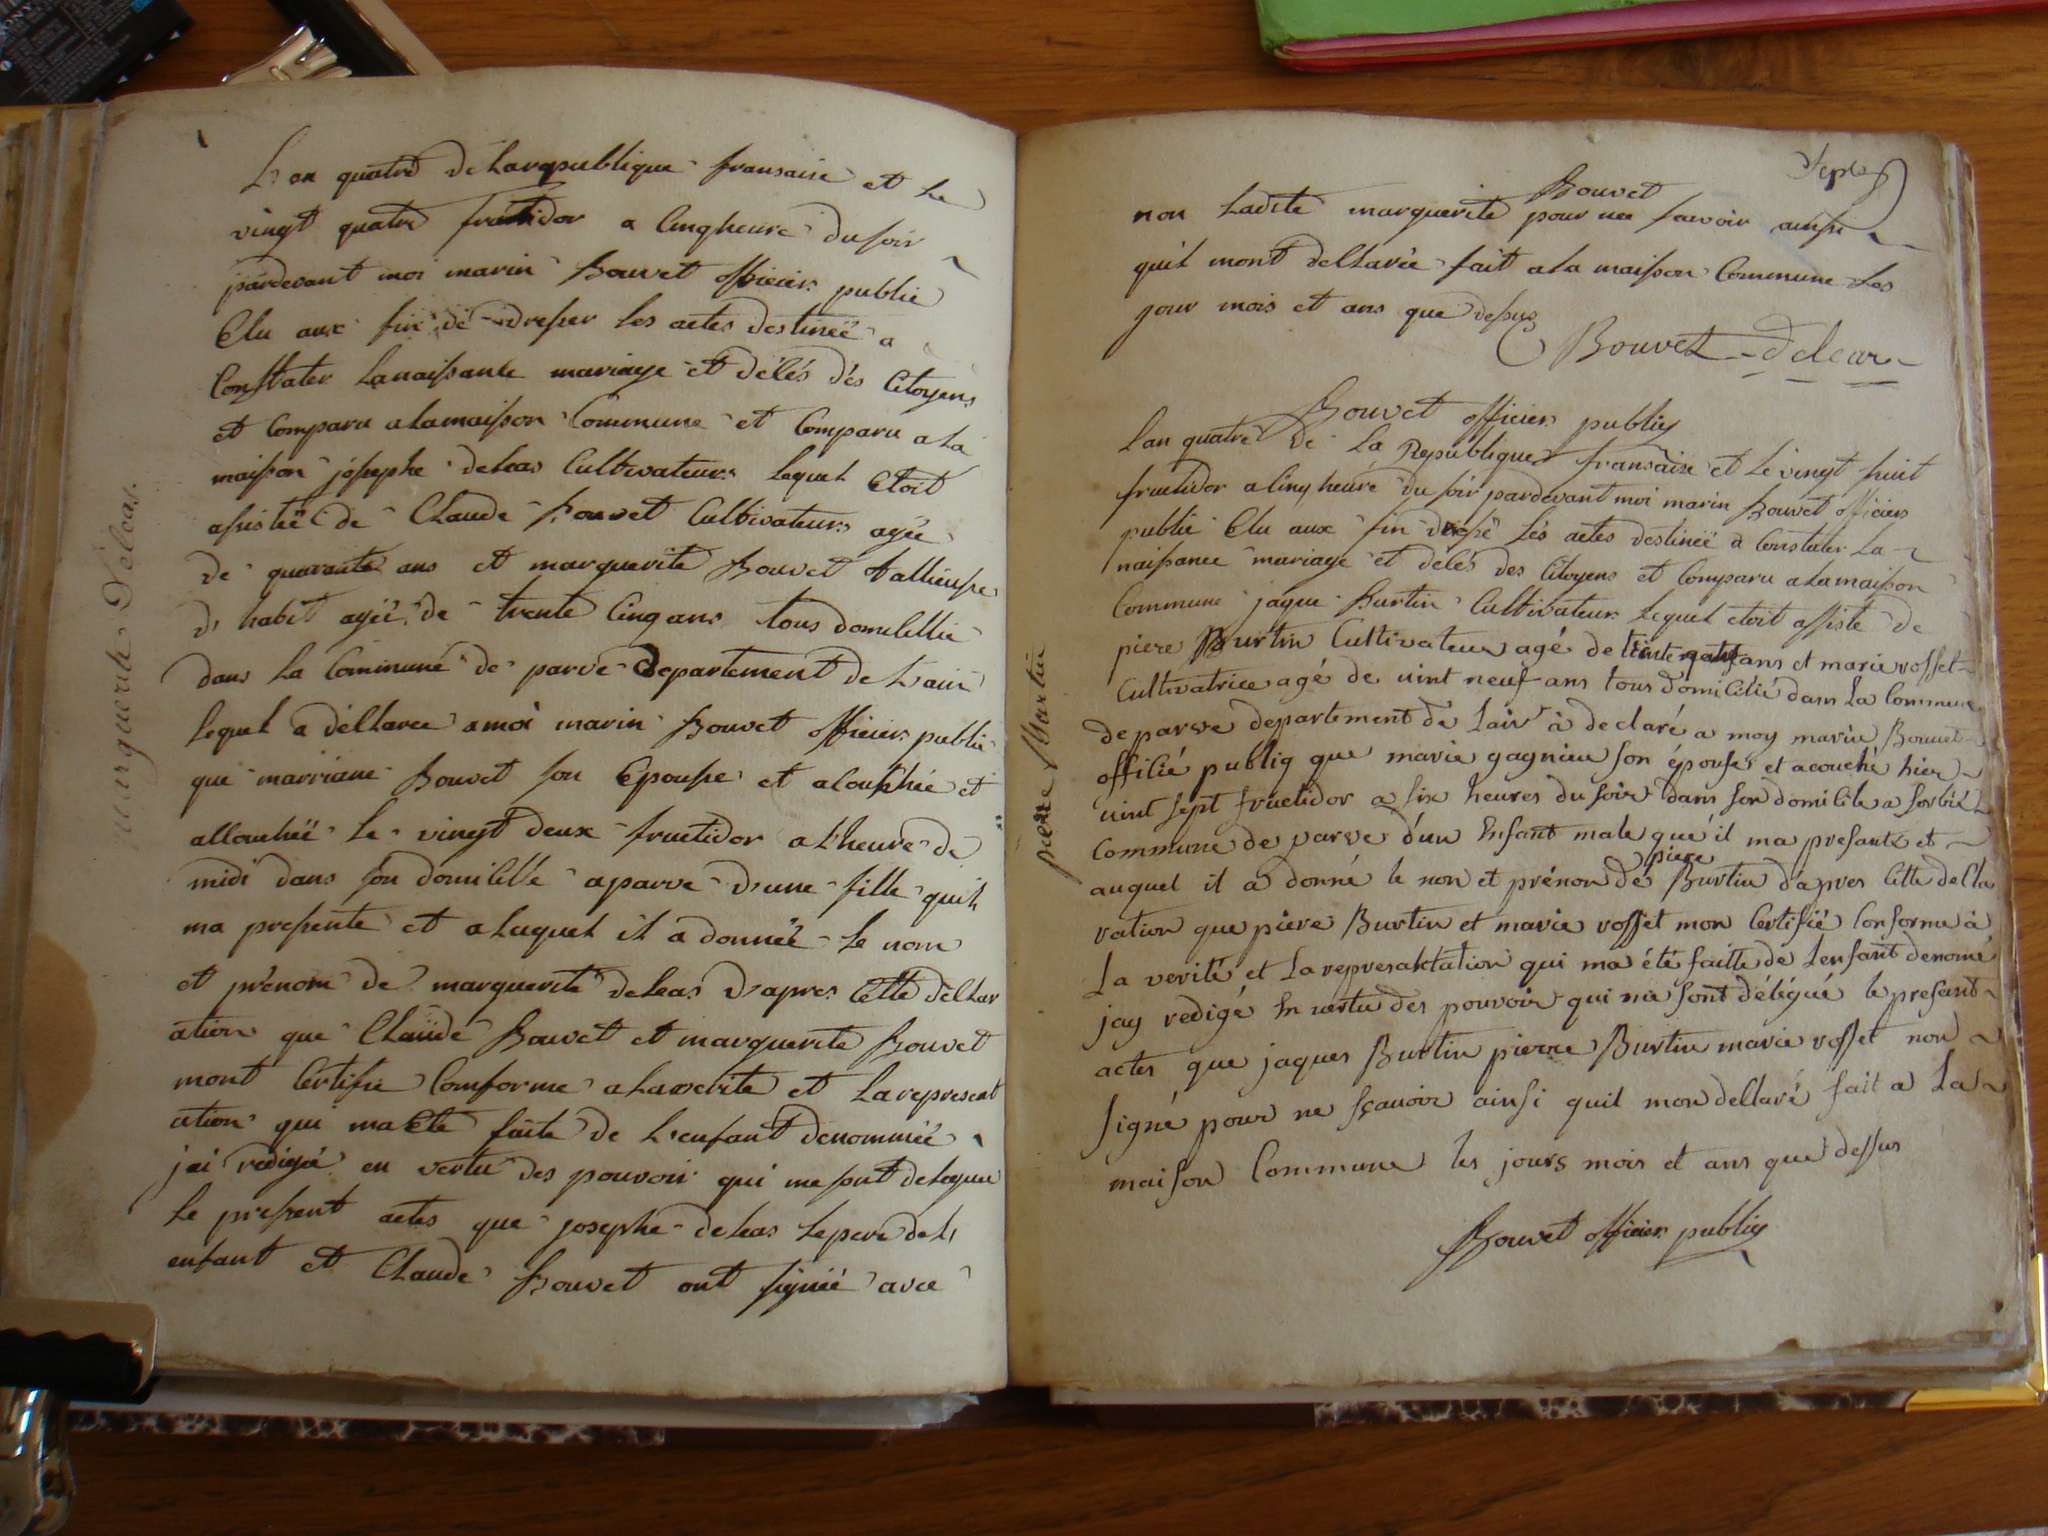 Marguerite Déleas.
L'an quatre de Larepublique fransaise et Le
vingt quatre fructidor a Cinqheure dusoir
pardevant moi marin Bouvet officier public
Elu aux fin de dresser les actes destineé a
Constater Lanaissance mariage et délés dés Citoyens
et Comparu alamaisson Commune et Comparu a La
maisson josephe deleas Cultivateur Lequel Etoit
asistée de Claude Bouvet Cultivateur agée
de quarante ans et marguerite Bouvet tallieuse
d'habit agée de trente Cinq ans tous domicillie
dans La Commune de parve Departement de L'ain
Lequel a déllaree a moi marin Bouvet officier public
que marriane Bouvet son Epousse et alouchée et
allouchée Le vingt deux fructidor a L'heure de
midi dans son domicille aparve d'une fille quil
ma presente et a Laquel il a donnée Le nom
et prénom de marguerite deleas d'apres Cette déllar
ation que Claude Bouvet et marguerite Bouvet
mont Certifie Comforme alaverite et Larepresent
ation qui ma Ete faite de L'enfant denommée
jai redigée en vertu des pouvoir qui me sont delegue
Le present actes que josephe deleas Lepere de L'
enfant et Claude Bouvet ont signée avec
Sept
Bouvet
non Ladite marguerite pour nee savoir ainsi
quil mont dellarée fait ala maisson Commune Les
jour mois et ans que desus
Bouvet Delear
Bouvet officier publiq
pierre Martin
lan quatre de La Republique fransaise et Le vingt huit
fructidor a Cinq heure du soir pardevant moi marin Bouvet officier
public Elu aux fin dresse Les actes destineé a Constater La
naissance mariage et délés des Citoyens et Comparu alamaisson
Commune jaque Burtin Cultivateur Lequel etoit assiste de
piere Burtin Cultivateur agé de ans et marie rosset
Cultivatrice agé de vint neuf ans tous domicilié dans La Commune
de parve departement de Lain à declaré a moy marin Bouvet
offilié publiq que marie gagnieu son épouse et acouché hier
vint sept fructidor a six heures du soir dans son domicile a sorbié
Commune de parve d'un Enfant male que'il ma presanté et
auquel il a donné le non et prénon de piere Burtin d'apres Cette della
ration que piere Burtin et marie rosset mon Certifié Conforme à
La verité et La represantation qui ma été faitte de Lenfant denomé
jay redigé En vertu des pouvoir qui me sont délégué le presant
actes que jaques Burtin pierre Burtin marie rosset non
signé pour ne sçavoir ainsi quil mon dellaré fait a La
maison Commune les jours mois et ans que dessus
Bouvet officier publiq